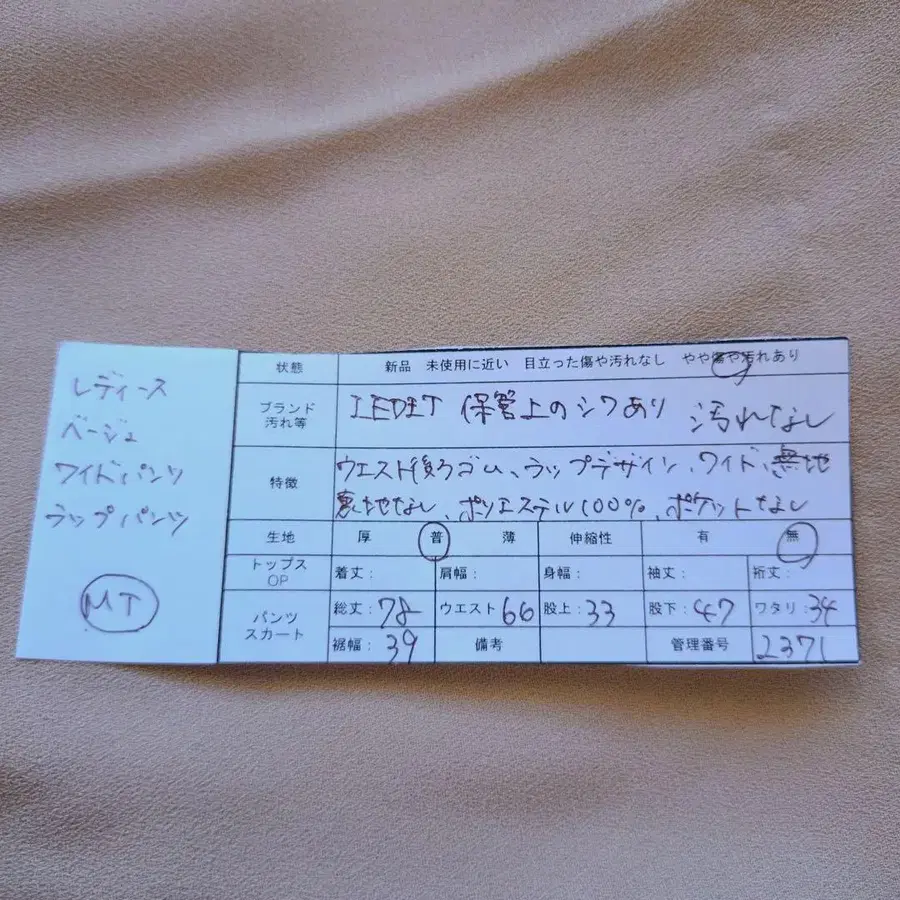 レディース
ベージュ
ワイドパンツ
ラップパンツ
MT
状態 新品 未使用に近い 目立った傷や汚れなし やや傷や汚れあり
ブランド 汚れ等 IEDIT 保管上のシワあり 汚れなし
特徴 ウエスト後ろゴム、ラップデザイン、ワイド、無地
裏地なし、ポリエステル100%、ポケットなし
生地 厚 普 薄 伸縮性 有 無
トップス OP 着丈: 肩幅: 身幅: 袖丈: 裄丈:
パンツ スカート 総丈:78 ウエスト66 股上:33 股下:47 ワタリ:34
裾幅:39 備考 管理番号 2371